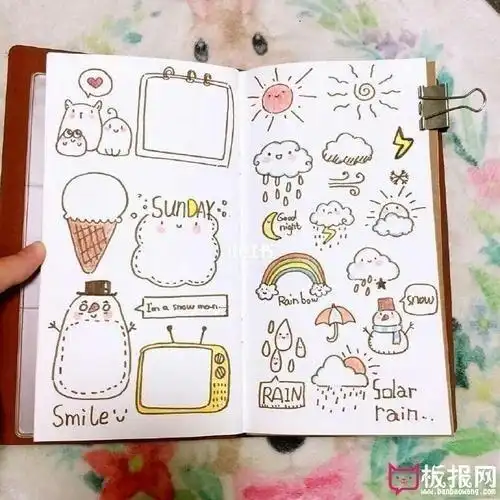 SUNDAY
I'm a snow man...
Smile
Good
night
Rainbow
snow
RAIN
Solar
rain..
板报网
www.banbaowang.com